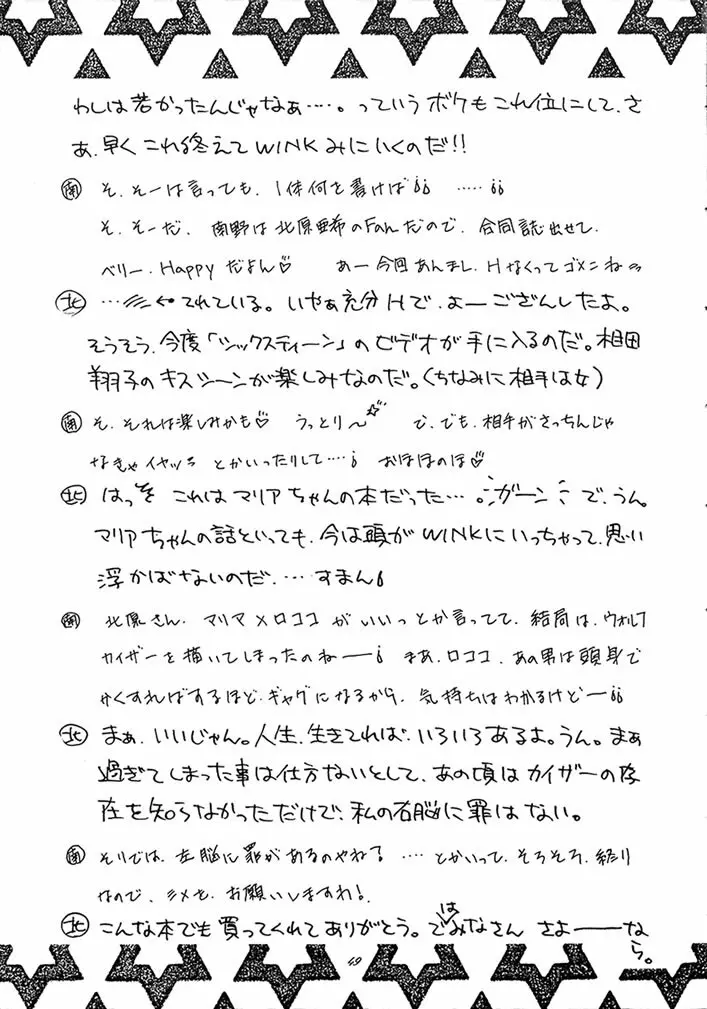 わしは若かったんじゃなぁ…‥。っていうボケもこれ位にして、さ
ぁ、早くこれ終えてWINKみにいくのだ!!
南 そ、そーは言っても、1体何を書けば¡¡ ‥…¡¡
そ、そーだ、南野は北原亜希のFanだので、合同誌出せて、
ベリー・Happyだよん♡ あー今回あんまし、Hなくってゴメンね
北 … ←てれている。いやぁ充分Hで、よーござんしたよ。
そうそう、今度「シックスティーン」のビデオが手に入るのだ。相田
翔子のキスシーンが楽しみなのだ。(ちなみに相手は女)
南 そ、それは楽しみかも♡ うっとり〜☆ で、でも、相手がさっちんじゃ
なきゃイヤッ とかいったりして…¡ おほほのほ♡
北 はっ これはマリアちゃんの本だった… ガーン で、うん。
マリアちゃんの話といっても、今は頭がWINKにいっちゃって、思い
浮かばないのだ、…すまん¡
南 北原さん、マリア×ロココがいいっとか言ってて、結局は、ウォルフ
カイザーを描いてしまったのねー¡ まあ、ロココ、あの男は頭身で
かくすればするほど、ギャグになるから、気持ちはわかるけどー¡¡
北 まぁ、いいじゃん。人生、生きてれば、いろいろあるよ。うん。まぁ
過ぎてしまった事は仕方ないとして、あの頃はカイザーの存
在を知らなかっただけで、私の右脳に罪はない。
南 そりでは、左脳に罪があるのやね? …とかいって、そろそろ、終り
なので、シメを、お願いしますわ!
北 こんな本でも買ってくれてありがとう。ではみなさん さよーーーな
ら。
49